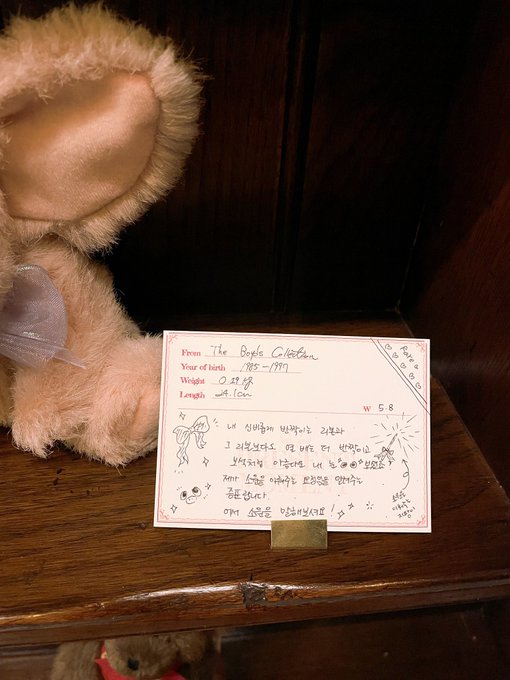 From The Boyds Collection
Year of birth 1985-1997
Weight 0.29kg
Length 24.1cm
Rare
₩ 5.8
내 신비롭게 반짝이는 리본과
그 리본보다도 몇 배는 더 반짝이고
보석처럼 아름다운 내 눈 보이죠
제가 소원을 이뤄주는 요정임을 알려주는
증표랍니다.
어서 소원을 말해보셔요!
소원을
이뤄주는
지팡이